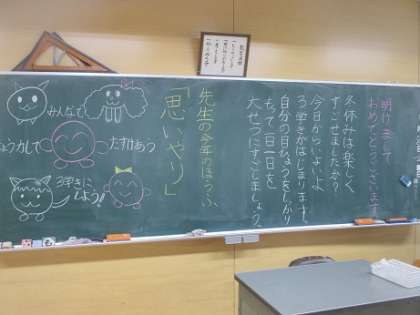 明けまして
おめでとうございます
冬休みは楽しく
すごせましたか?
今日からいよいよ
3学きがはじまります。
自分の目ひょうをしっかり
もって一日一日を
大せつにすごしましょう。
先生の今年のほうふ
「思いやり」
みんなで
きょう力して
たすけあう
3学きに
しよう!